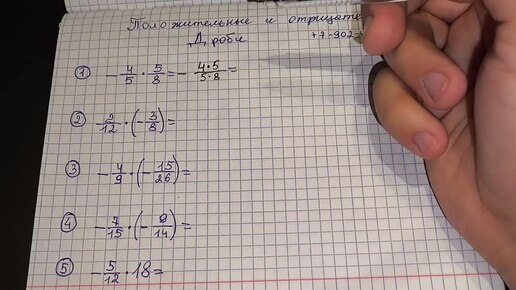 Положительные и отрицате
Дроби +7-902-
① -4/5 · 5/8 = - 4·5/5·8 =
② -2/12 · (-3/8) =
③ -4/9 · (-15/26) =
④ -7/15 · (-9/14) =
⑤ -5/12 · 18 =